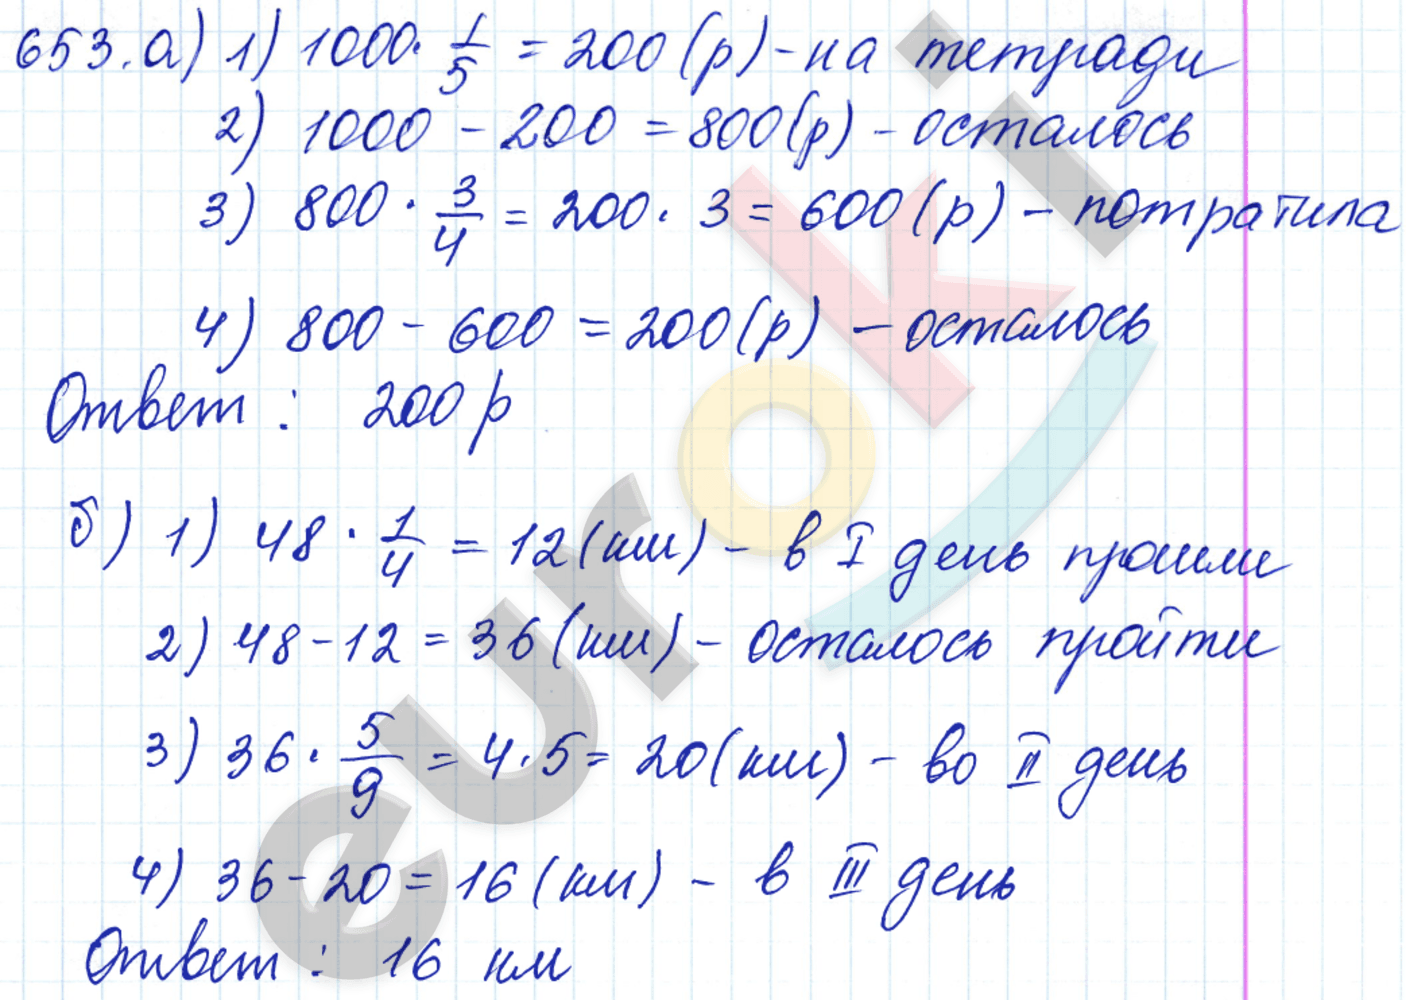 653. а) 1) 1000 · 1/5 = 200 (р) - на тетради
2) 1000 - 200 = 800 (р) - осталось
3) 800 · 3/4 = 200 · 3 = 600 (р) - потратила
4) 800 - 600 = 200 (р) - осталось
Ответ: 200 р
б) 1) 48 · 1/4 = 12 (км) - в I день прошли
2) 48 - 12 = 36 (км) - осталось пройти
3) 36 · 5/9 = 4 · 5 = 20 (км) - во II день
4) 36 - 20 = 16 (км) - в III день
Ответ: 16 км
euroki